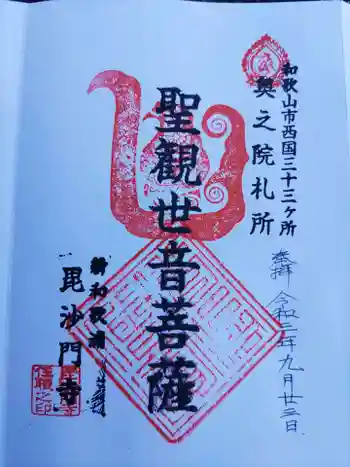 和歌山市西国三十三ヶ所
奥之院札所
奉拝 令和二年九月廿三日
聖観世音菩薩
新和歌浦
毘沙門寺